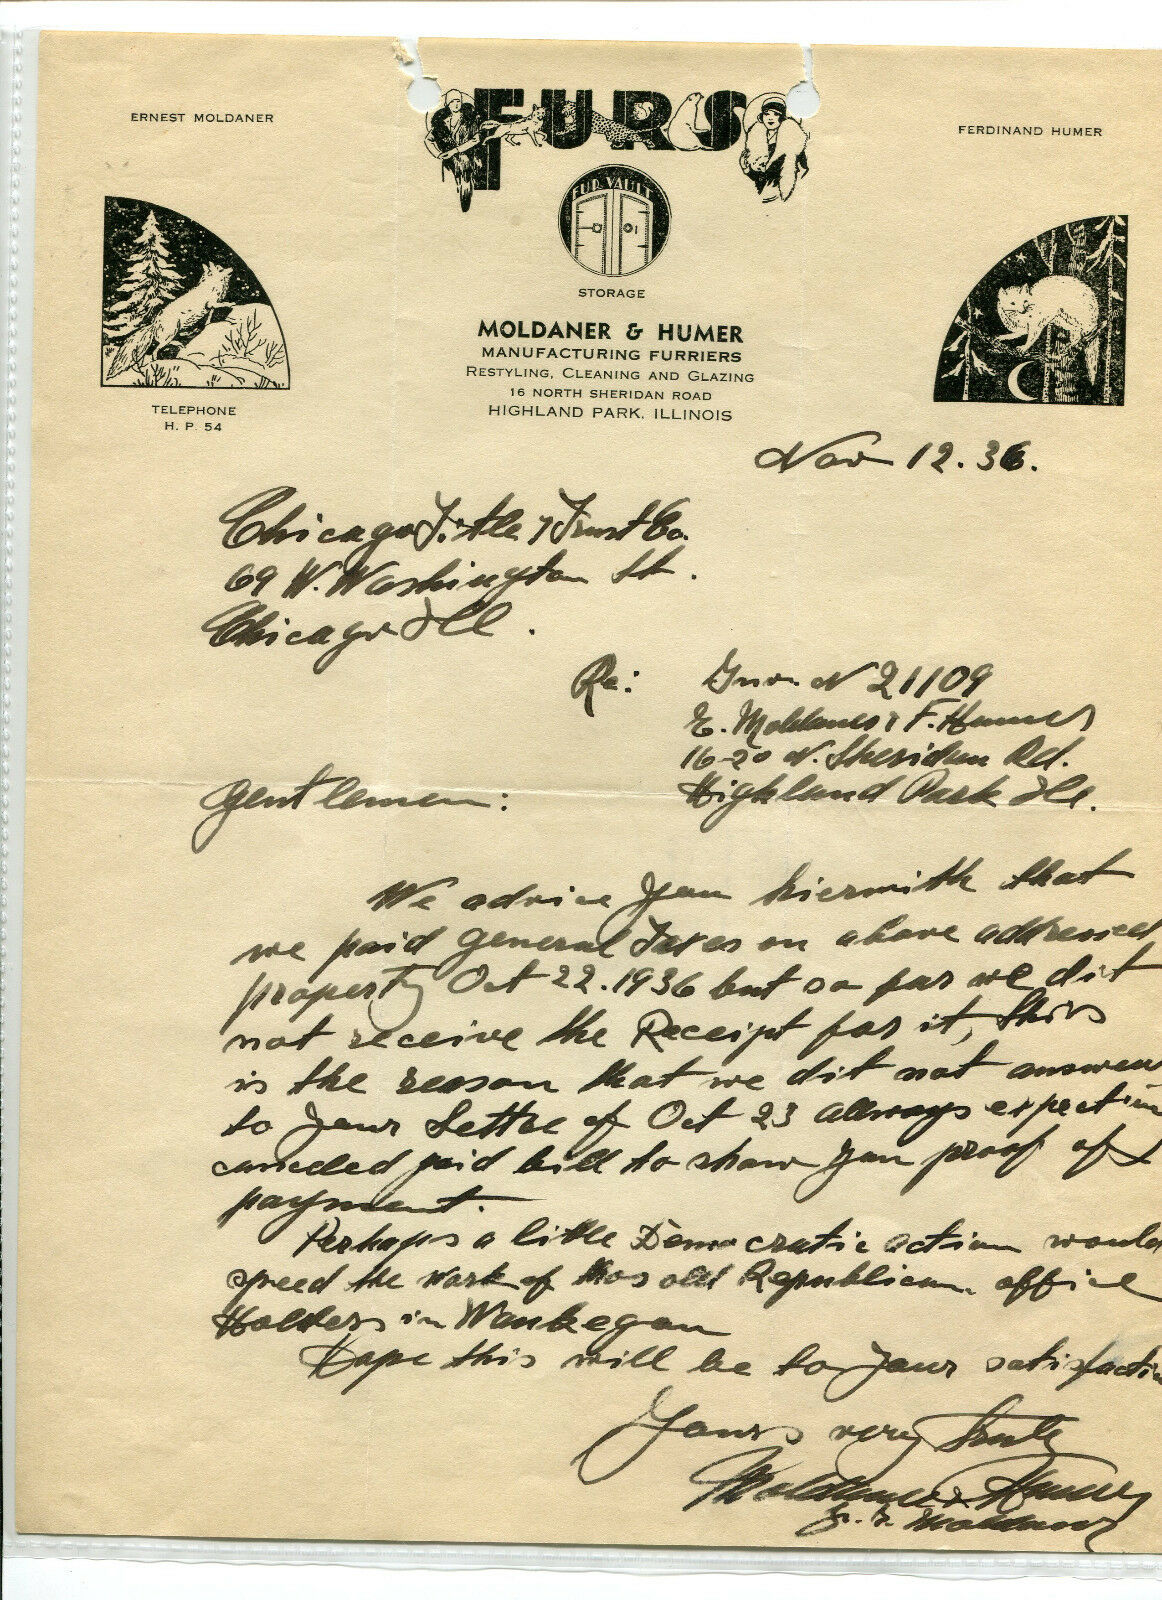 FURS
ERNEST MOLDANER
FERDINAND HUMER
FUR VAULT
STORAGE
MOLDANER & HUMER
MANUFACTURING FURRIERS
RESTYLING, CLEANING AND GLAZING
16 NORTH SHERIDAN ROAD
HIGHLAND PARK, ILLINOIS
TELEPHONE
H. P. 54
Nov 12. 36.
Chicago Title & Trust Co.
69 W. Washington St.
Chicago Ill.
Re: Inv. N 21109
E. Moldaner & F. Humer
16-20 N. Sheridan Rd.
Highland Park Ill.
Gentlemen:
We advice you hiermith that
we paid general Taxes on above addressed
property Oct 22. 1936 but so far we dit
not receive the Receipt for it, this
is the reason that we dit not answer
to your Letter of Oct 23 allways expectin
canceled paid bill to show you proof of
payment.
Perhaps a little Democratic action would
speed the work of thos old Republican office
Holders in Waukegan
Hope this will be to your satisfactio
Yours very truly
Moldaner & Humer
Moldaner